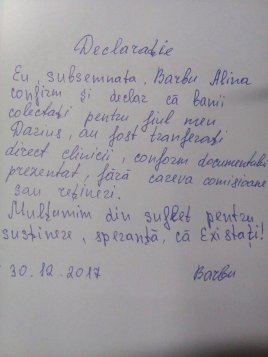 Declarație
Eu, subsemnata, Barbu Alina
confirm și declar că banii
colectați pentru fiul meu
Darius, au fost tranferați
direct clinicii, conform documentului
prezentat, fără careva comisioane
sau rețineri.
Mulțumim din suflet pentru
susținere, speranță, că Existați!
30.12.2017 Barbu